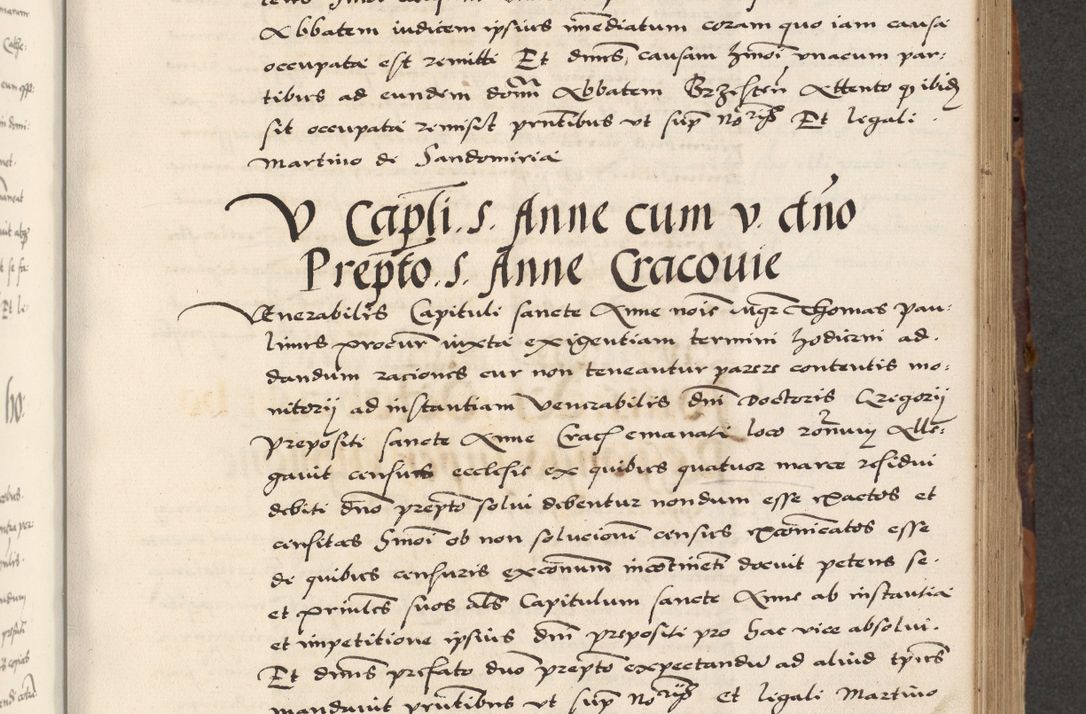 Abbatem iudicem ipsius im̄ediatum coram quo iam causa
occupata est remitti Et dn̄us causam hm̄oi vnacum par-
tibus ad eundem dom̄ Abbatem Brzesten̄ Attento q ibid
sit occupata remisit pn̄tibus vt sup̄ no^rijs Et legali
Martino de Sandomiria
V Cap̄li. S. Anne cum v. dn̄o
Prep̄to. S. Anne Cracouie
Venerabilis Capituli sancte Anne noi͞e mgr̄ Thomas Pau-
linus procur̄ iuxta exigentiam termini hodierni ad
dandum raciones cur non teneantur parere contentis mo-
nitorij ad instantiam Venerabilis dn̄i Doctoris Gregorij
prepositi sancte Anne Crac emanati loco ron̄um Alle-
gauit census ecclesie ex quibus quatuor marce residui
debiti dn̄o prep̄to solui debentur nondum esse exactos et
censitas hm̄oi ob non solucione͞ census excom̄icatos esse
de quibus censuris excom̄um in contine͞ti docuit petens se
et prin̄les suos als̄ Capitulum sancte Anne ab instantia
et impetitione ipsius dn̄i prepositi pro hac vice absolui.
Et dn̄us prefato dn̄o prep̄to expectandu͞ ad aliud tp̄us
mandauit pn̄tibus vt sup̄ no^rijs et legali Martino